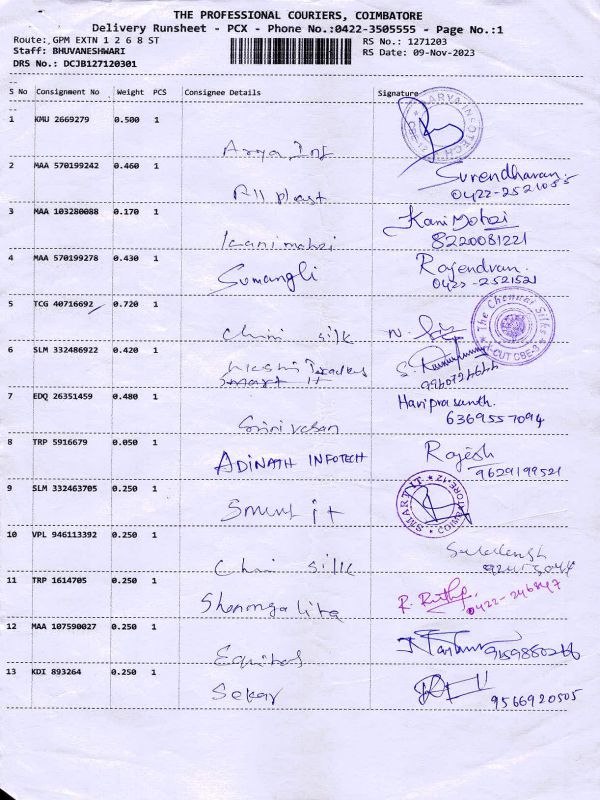 THE PROFESSIONAL COURIERS, COIMBATORE
Delivery Runsheet - PCX - Phone No.:0422-3505555 - Page No.:1
Route: GPM EXTN 1 2 6 8 ST
RS No.: 1271203
Staff: BHUVANESHWARI
RS Date: 09-Nov-2023
DRS No.: DCJB127120301
S No Consignment No Weight PCS Consignee Details Signature
1 KMU 2669279 0.500 1
ARYA INFOTECH CBE-12
Arya Inf
2 MAA 570199242 0.460 1
Surendharan
All plast 0422-2521055
3 MAA 103280088 0.170 1 Kanimozhi
Kanimozhi 8220081221
4 MAA 570199278 0.430 1 Rajendran
Sumangli 0422-2521521
5 TCG 40716692 0.720 1 The Chennai Silks
CUT CBE-3
silk
6 SLM 332486922 0.420 1
Traders
Smart It
7 EDQ 26351459 0.480 1 Hariprasanth.
Srinivasan 6369557094
8 TRP 5916679 0.050 1 Rajesh
ADINATH INFOTECH 9629199521
9 SLM 332463705 0.250 1 SMART IT COIMBATORE-12
Smart it
10 VPL 946113392 0.250 1
silk
11 TRP 1614705 0.250 1
R.
12 MAA 107590027 0.250 1
Equitas
13 KDI 893264 0.250 1
Sekar 9566920505